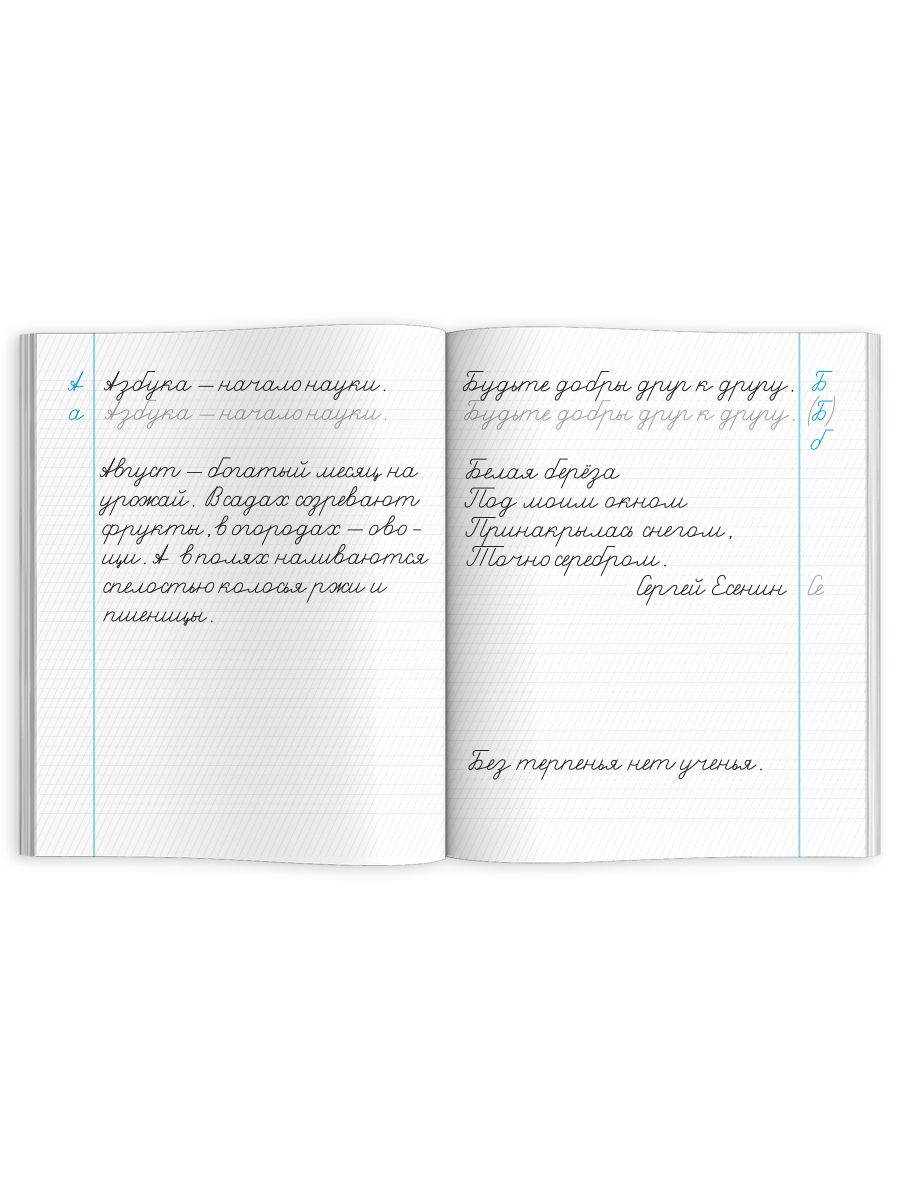 А Азбука – начало науки.
а Азбука – начало науки.
Август – богатый месяц на
урожай. В садах созревают
фрукты, в огородах – ово-
щи. А в полях наливаются
спелостью колосья ржи и
пшеницы.
Будьте добры друг к другу. Б
Будьте добры друг к другу. (Б)
б
Белая берёза
Под моим окном
Принакрылась снегом,
Точно серебром.
Сергей Есенин Се
Без терпенья нет ученья.